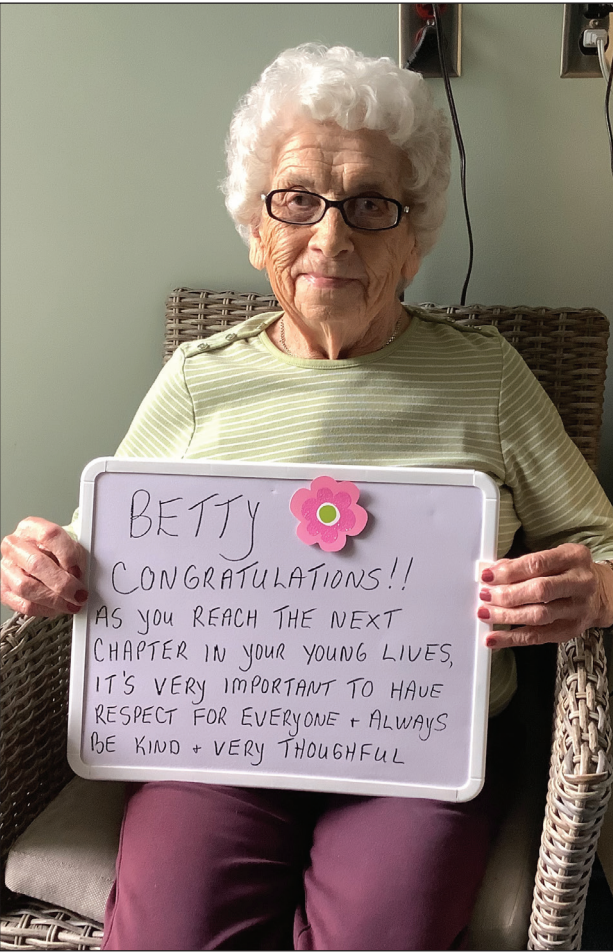 BETTY
CONGRATULATIONS!!
AS YOU REACH THE NEXT
CHAPTER IN YOUR YOUNG LIVES,
IT'S VERY IMPORTANT TO HAVE
RESPECT FOR EVERYONE + ALWAYS
BE KIND + VERY THOUGHFUL